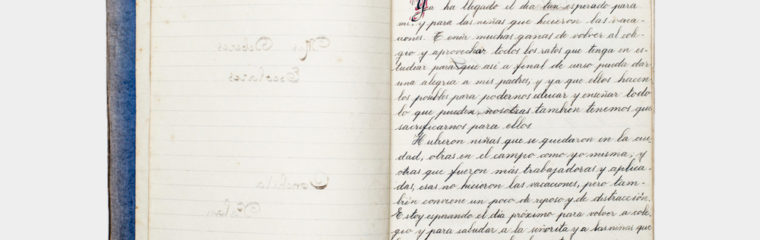 Mis Deberes
Escolares
Conchita
Ya ha llegado el día tan esperado para
mi y para las niñas que hicieron las vaca-
ciones. Tenía muchas ganas de volver al cole-
gio y aprovechar todos los ratos que tenga en es-
tudiar para que así a final de curso pueda dar
una alegria a mis padres, y ya que ellos hacen
los posibles para podernos educar y enseñar todo
lo que pueden, nosotras también tenemos que
sacrificarnos para ellos.
Hubieron niñas que se quedaron en la ciu-
dad, otras en el campo como yo misma, y
otras que fueron más trabajadoras y aplica-
das, esas no hicieron las vacaciones, pero tam-
bién conviene un poco de reposo y de distracción.
Estoy esperando el día próximo para volver a cole-
gio y para saludar a la señorita y a las niñas que